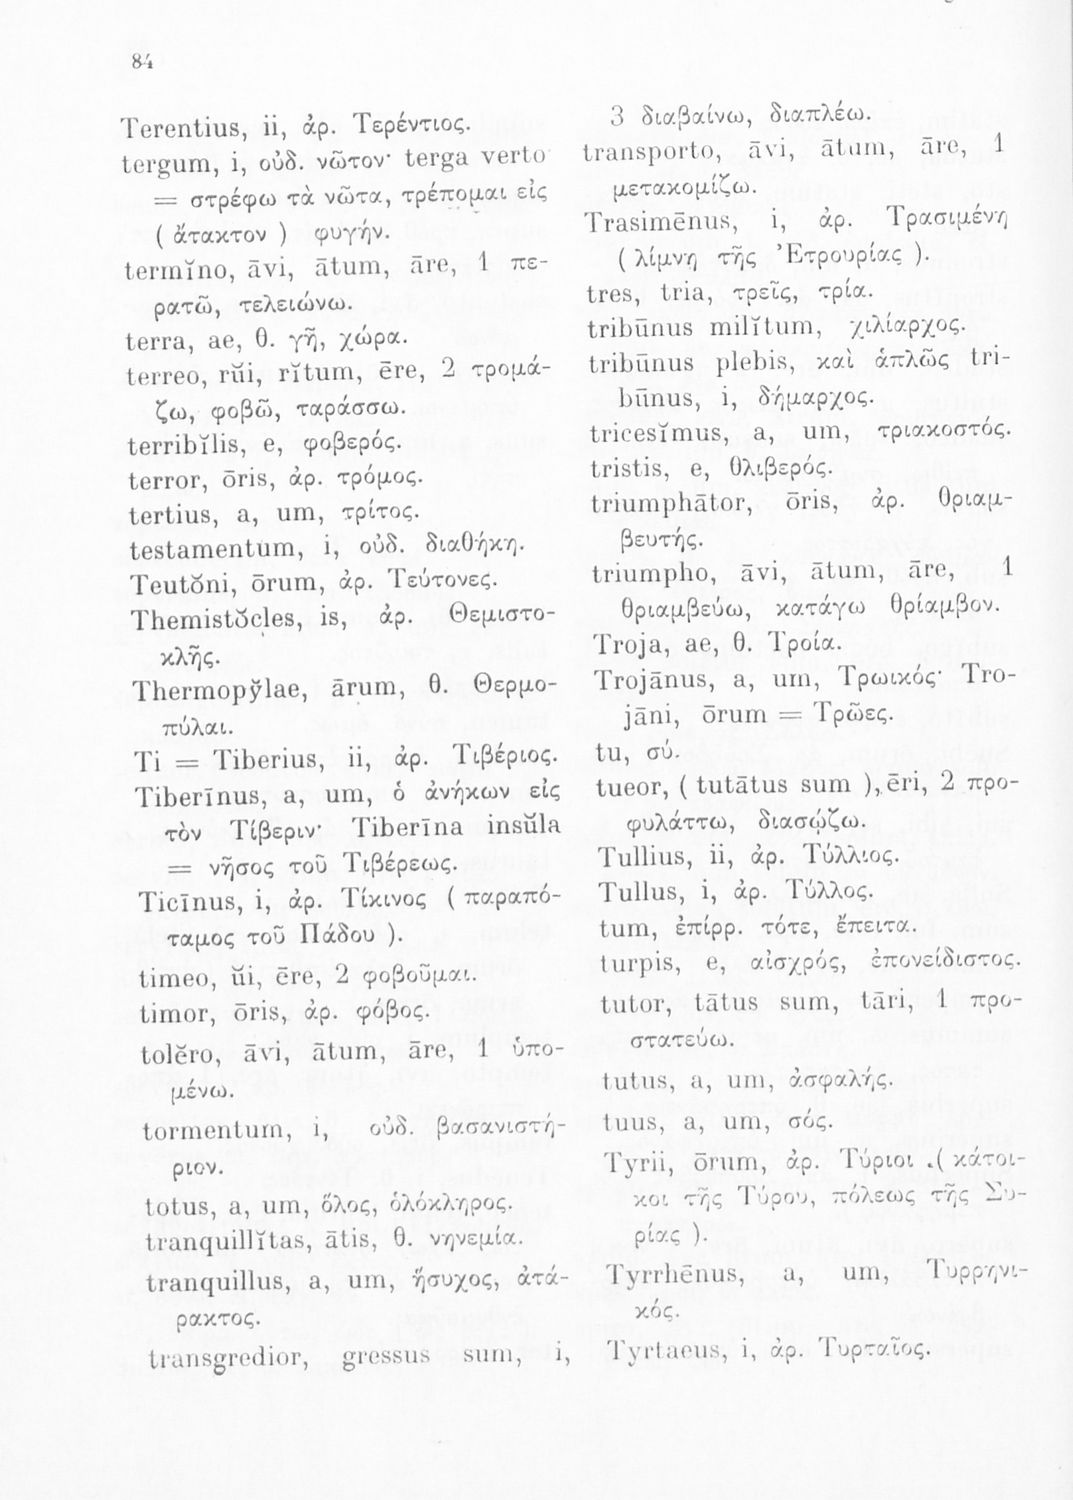 84
Terentius, ii, ἀρ. Τερέντιος.
tergum, i, οὐδ. νῶτον· terga verto
= στρέφω τὰ νῶτα, τρέπομαι εἰς
( ἄτακτον ) φυγήν.
termĭno, āvi, ātum, āre, 1 πε-
ρατῶ, τελειώνω.
terra, ae, θ. γῆ, χώρα.
terreo, rŭi, rĭtum, ēre, 2 τρομά-
ζω, φοβῶ, ταράσσω.
terribĭlis, e, φοβερός.
terror, ōris, ἀρ. τρόμος.
tertius, a, um, τρίτος.
testamentum, i, οὐδ. διαθήκη.
Teutŏni, ōrum, ἀρ. Τεύτονες.
Themistŏcles, is, ἀρ. Θεμιστο-
κλῆς.
Thermopy̆lae, ārum, θ. Θερμο-
πύλαι.
Ti = Tiberius, ii, ἀρ. Τιβέριος.
Tiberīnus, a, um, ὁ ἀνήκων εἰς
τὸν Τίβεριν· Tiberīna insŭla
= νῆσος τοῦ Τιβέρεως.
Ticīnus, i, ἀρ. Τίκινος ( παραπό-
ταμος τοῦ Πάδου ).
timeo, ŭi, ēre, 2 φοβοῦμαι.
timor, ōris, ἀρ. φόβος.
tolĕro, āvi, ātum, āre, 1 ὑπο-
μένω.
tormentum, i, οὐδ. βασανιστή-
ριον.
totus, a, um, ὅλος, ὁλόκληρος.
tranquillĭtas, ātis, θ. νηνεμία.
tranquillus, a, um, ἥσυχος, ἀτά-
ρακτος.
transgredior, gressus sum, i,
3 διαβαίνω, διαπλέω.
transporto, āvi, ātum, āre, 1
μετακομίζω.
Trasimēnus, i, ἀρ. Τρασιμένη
( λίμνη τῆς Ἐτρουρίας ).
tres, tria, τρεῖς, τρία.
tribūnus milĭtum, χιλίαρχος.
tribūnus plebis, καὶ ἁπλῶς tri-
būnus, i, δήμαρχος.
tricesĭmus, a, um, τριακοστός.
tristis, e, θλιβερός.
triumphātor, ōris, ἀρ. θριαμ-
βευτής.
triumpho, āvi, ātum, āre, 1
θριαμβεύω, κατάγω θρίαμβον.
Troja, ae, θ. Τροία.
Trojānus, a, um, Τρωικός· Tro-
jāni, ōrum = Τρῶες.
tu, σύ.
tueor, ( tutātus sum ), ēri, 2 προ-
φυλάττω, διασῴζω.
Tullius, ii, ἀρ. Τύλλιος.
Tullus, i, ἀρ. Τύλλος.
tum, ἐπίρρ. τότε, ἔπειτα.
turpis, e, αἰσχρός, ἐπονείδιστος.
tutor, tātus sum, tāri, 1 προ-
στατεύω.
tutus, a, um, ἀσφαλής.
tuus, a, um, σός.
Tyrii, ōrum, ἀρ. Τύριοι .( κάτοι-
κοι τῆς Τύρου, πόλεως τῆς Συ-
ρίας ).
Tyrrhēnus, a, um, Τυρρηνι-
κός.
Tyrtaeus, i, ἀρ. Τυρταῖος.